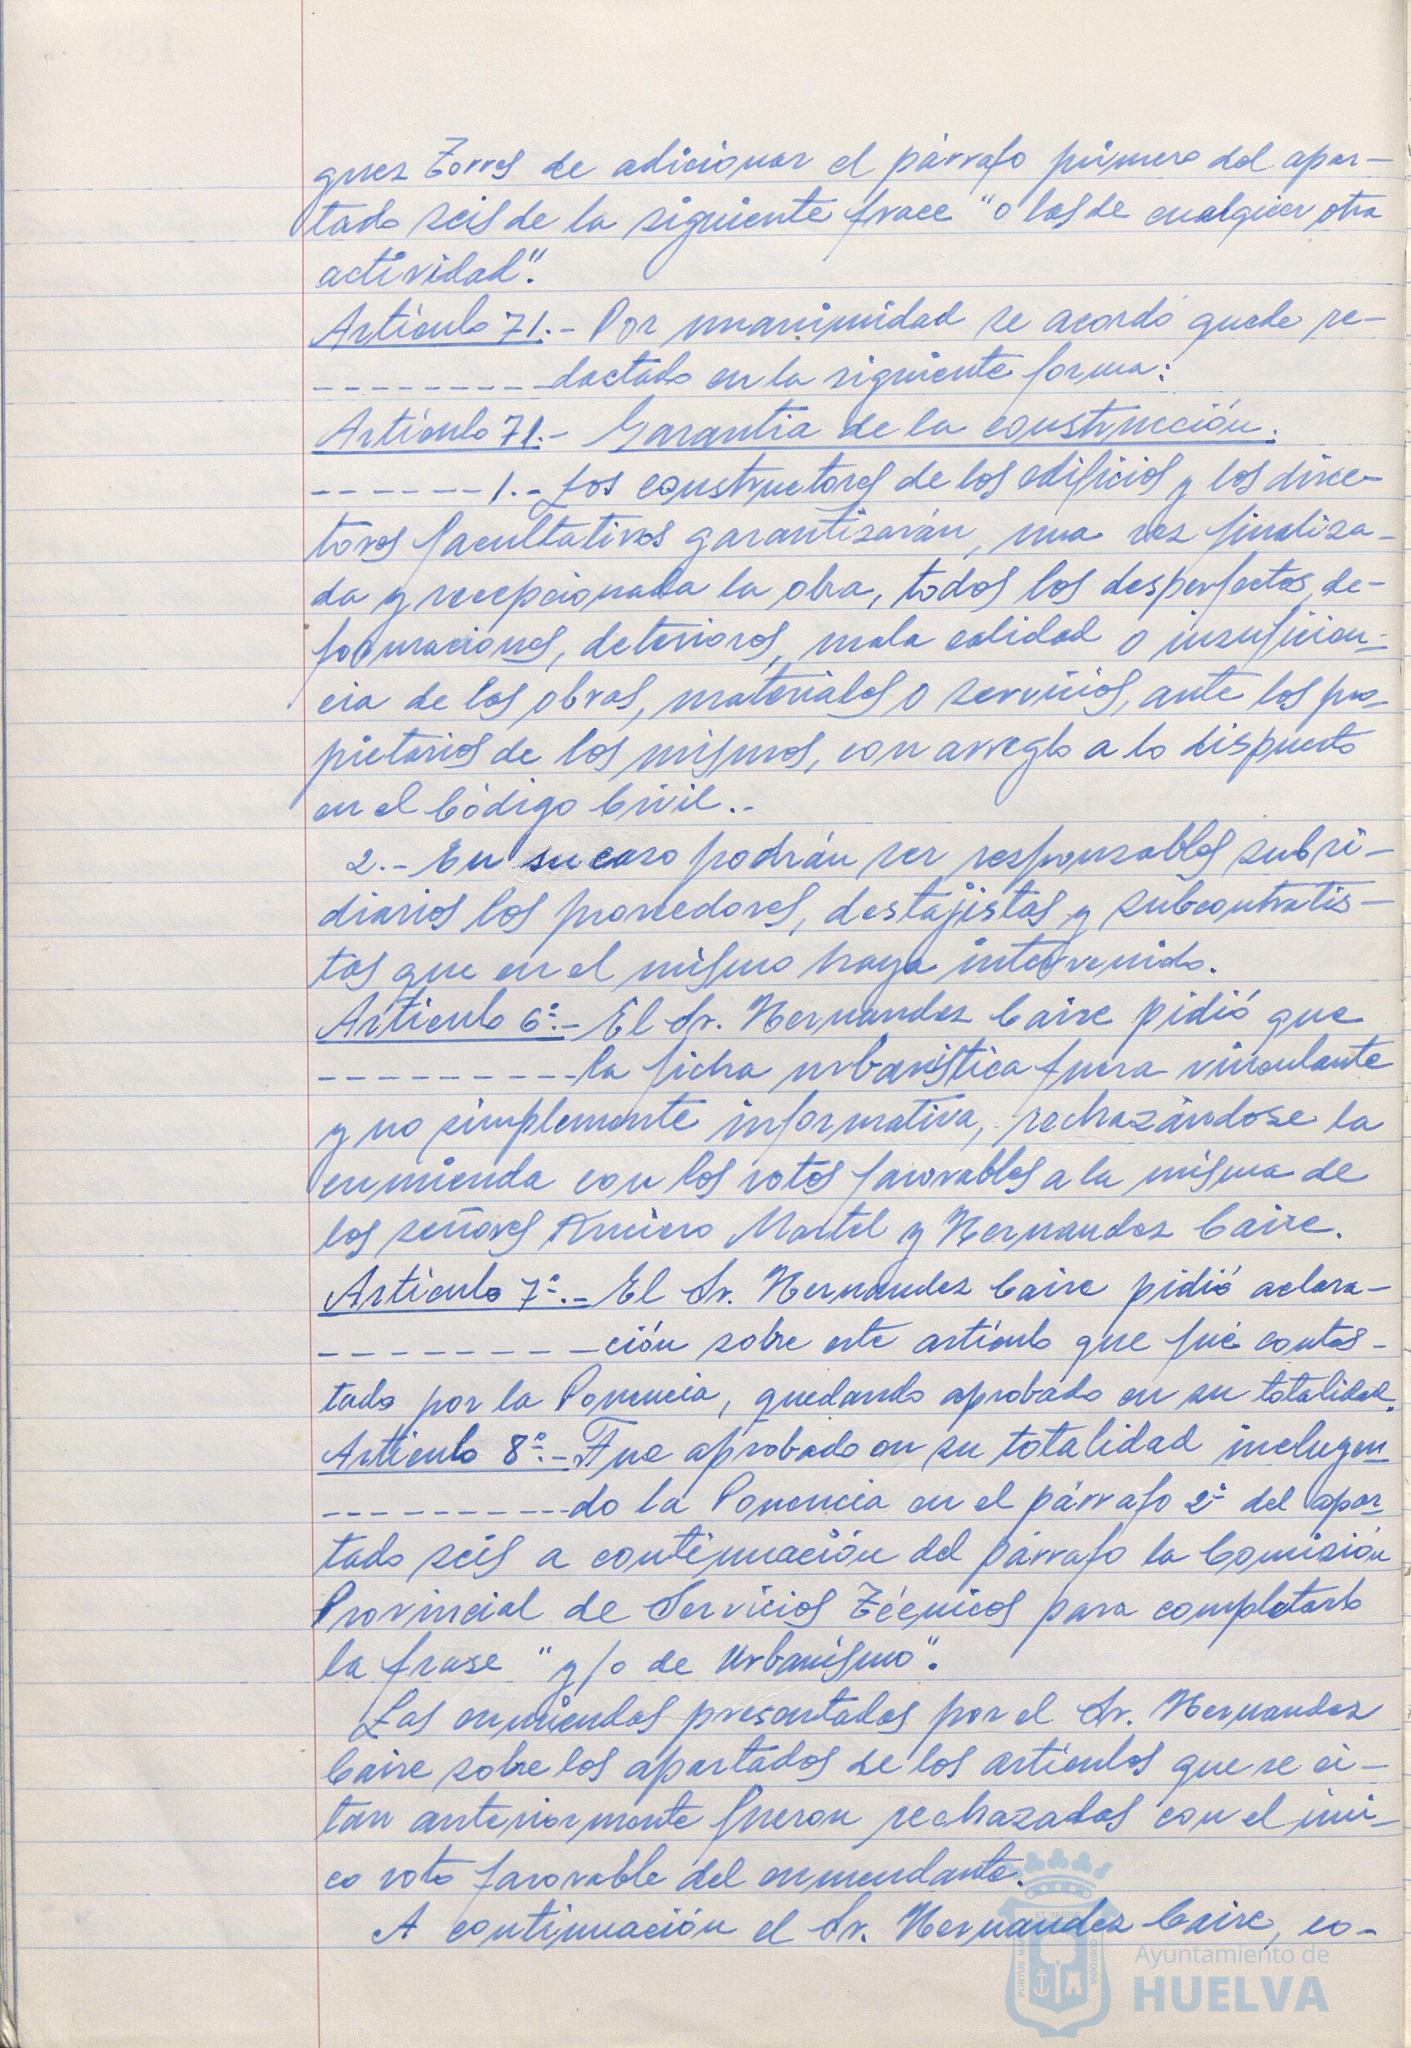 guez Torres de adicionar el párrafo primero del apar-
tado seis de la siguiente frace "o las de cualquier otra
actividad".
Artículo 71.- Por unanimidad se acordó quede re-
--------- dactado en la siguiente forma:
Artículo 71.- Garantía de la construcción.
------- 1.- Los constructores de los edificios y los direc-
tores facultativos garantizarán, una vez finaliza-
da y recepcionada la obra, todos los desperfectos, de-
formaciones, deterioros, mala calidad o insuficien-
cia de las obras, materiales o servicios, ante los pro-
pietarios de los mismos, con arreglo a lo dispuesto
en el Código Civil..
2.- En su caso podrán ser responsables subsi-
diarios los proveedores, destajistas y subcontratis-
tas que en el mismo haya intervenido.
Artículo 6º.- El Sr. Hernandez Caire pidió que
---------- la ficha urbanística fuera vinculante
y no simplemente informativa, rechazándose la
enmienda con los votos favorables a la misma de
los señores Martel y Hernandez Caire.
Artículo 7º.- El Sr. Hernandez Caire pidió aclara-
---------- ción sobre este artículo que fué contes-
tado por la Ponencia, quedando aprobado en su totalidad.
Artículo 8º.- Fue aprobado en su totalidad incluyen-
---------- do la Ponencia en el párrafo 2º del apar-
tado seis a continuación del párrafo la Comisión
Provincial de Servicios Técnicos para completarlo
la frase "y/o de Urbanismo".
Las enmiendas presentadas por el Sr. Hernandez
Caire sobre los apartados de los artículos que se ci-
tan anteriormente fueron rechazadas con el úni-
co voto favorable del enmendante.
A continuación el Sr. Hernandez Caire, co-
PORTUS MARIS
ET TERRAE
CUSTODIA
Ayuntamiento de
HUELVA